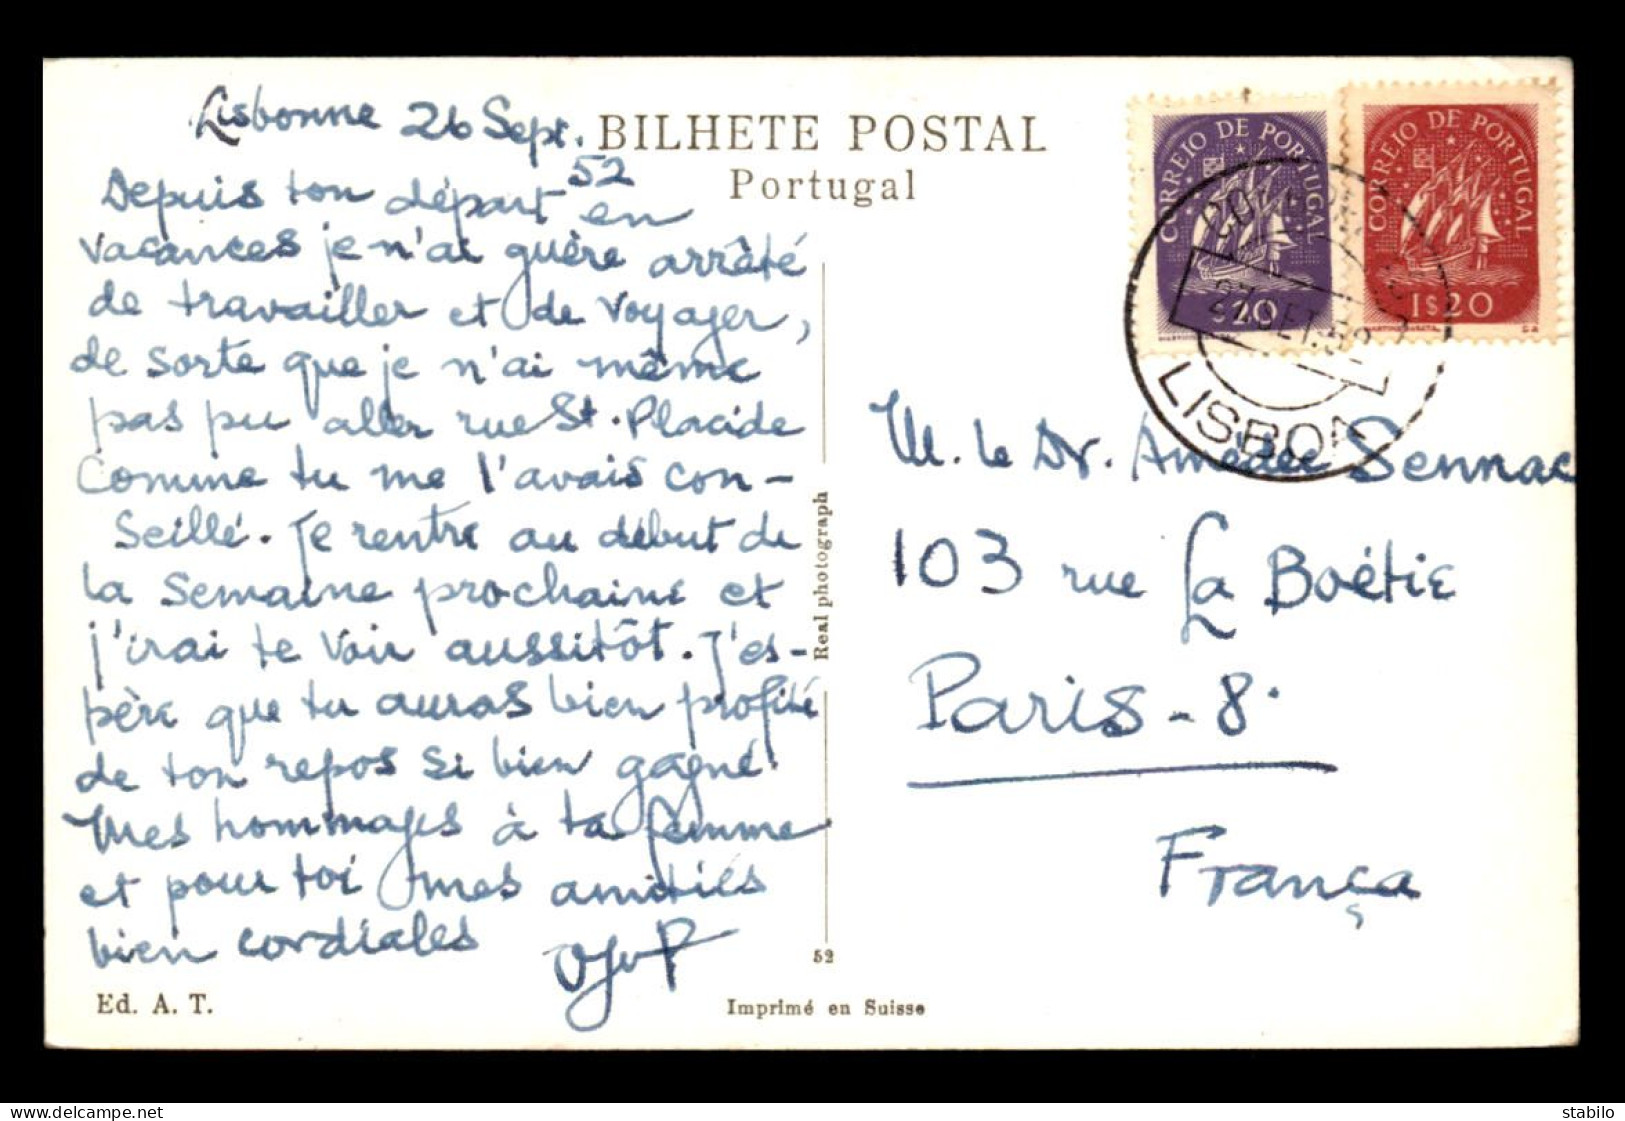 Lisbonne 26 Sept.
52
Depuis ton départ en
vacances je n'ai guère arrêté
de travailler et de voyager,
de sorte que je n'ai même
pas pu aller rue St. Placide
comme tu me l'avais con-
seillé. Je rentre au début de
la semaine prochaine et
j'irai te voir aussitôt. J'es-
père que tu auras bien profité
de ton repos si bien gagné.
Mes hommages à ta femme
et pour toi mes amitiés
bien cordiales
Ed. A. T.
BILHETE POSTAL
Portugal
Real photograph
52
Imprimé en Suisse
CORREIO DE PORTUGAL
$20
CORREIO DE PORTUGAL
1$20
27 SET.52
LISBOA
M. le Dr. Amédée Sennac
103 rue La Boétie
Paris - 8.
França
stabilo